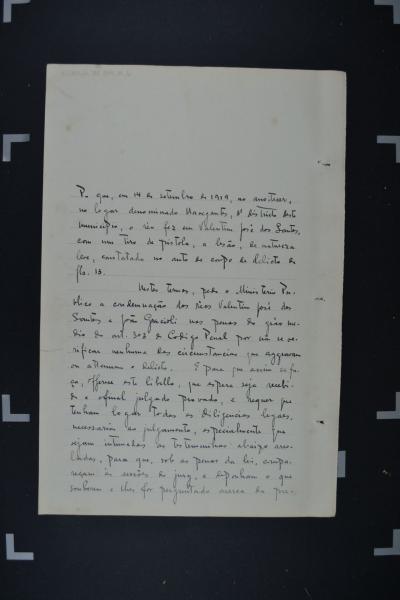 P. que, em 14 de setembro de 1919, ao anoitecer,
no logar denominado Navegantes, 1º districto deste
municipio, o réo fez em Valentim José dos Santos,
com um tiro de pistola, a lesão, de natureza
leve, constatada no auto de corpo de delicto de
fls. 13.
Nestes termos, pede o Ministerio Pu-
blico a condemnação dos réos Valentim José dos
Santos e João Gracioli nas penas do gráo me-
dio do art. 303 do Codigo Penal por não se ve-
rificar nenhuma das circumstancias que aggravam
ou attenuam o delicto. E para que assim se fa-
ça, offerece este libello, que espera seja recebi-
do e afinal julgado provado, e requer que
tenham logar todas as diligencias legaes,
necessarias ao julgamento, especialmente que
sejam intimadas as testemunhas abaixo arro-
ladas, para que, sob as penas da lei, compa-
reçam ás sessões do jury, e deponham o que
souberem e lhes for perguntado acerca do pre-